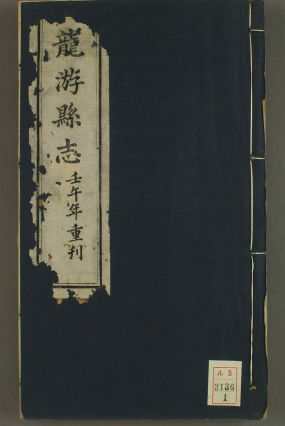 龍游縣志
壬午年重刋
ル5
3136
1